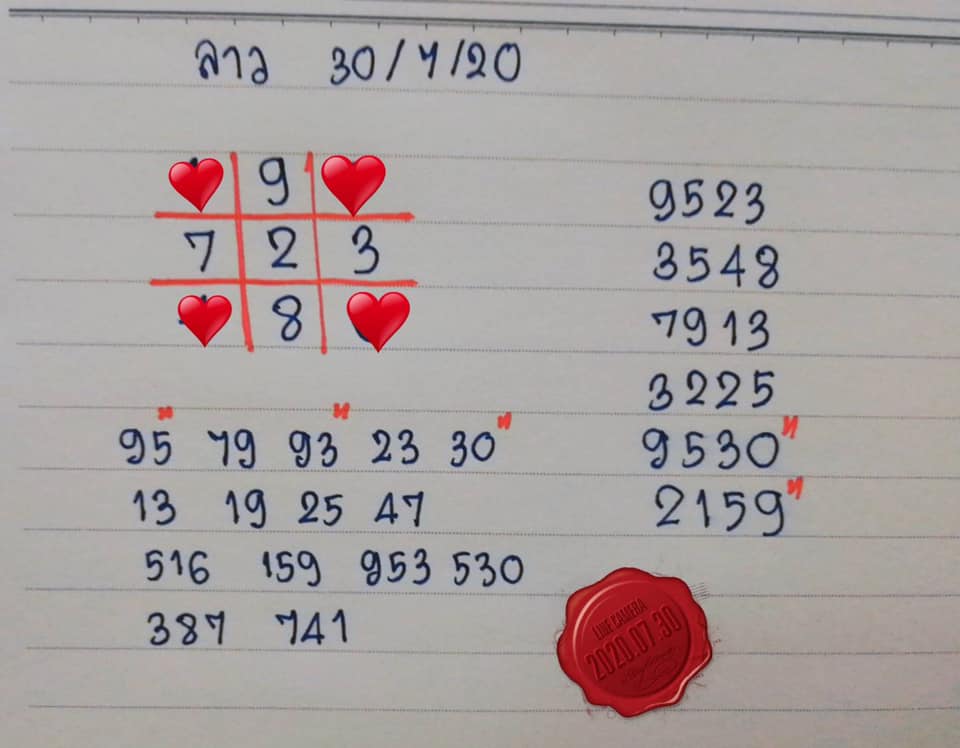 ลาว 30/7/20
9
7 2 3
8
9523
3548
7913
3225
9530 ท
2159 ท
ท ท ท
95 79 93 23 30
13 19 25 47
516 159 953 530
387 741
LINE CAMERA
2020.07.30